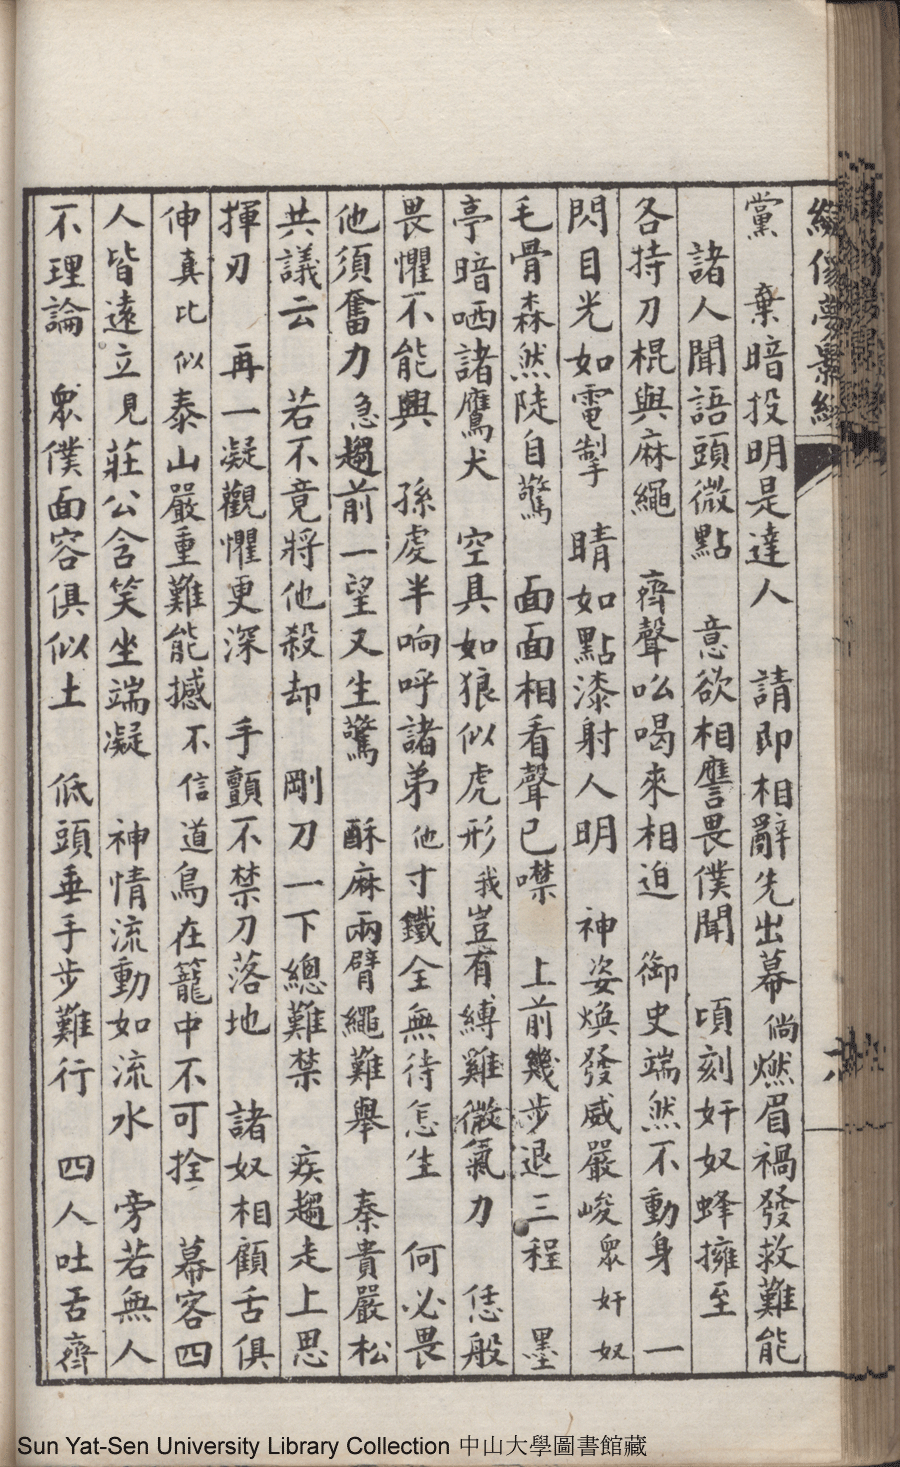 繡像夢影緣
黨　棄暗投明是達人　請即相辭先出幕倘燃眉禍發救難能
諸人聞語頭微點　意欲相譍畏僕聞　頃刻奸奴蜂擁至
各持刀棍與麻繩　齊聲吆喝來相迫　御史端然不動身　一
閃目光如電掣　睛如點漆射人明　神姿煥發威嚴峻眾奸奴
毛骨森然陡自驚　面面相看聲已噤　上前幾步退三程　墨
亭暗哂諸鷹犬　空具如狼似虎形我豈有縛雞微氣力　恁般
畏懼不能興　孫虔半晌呼諸弟他寸鐵全無待怎生　何必畏
他須奮力急趨前一望又生驚　酥麻兩臂繩難舉　秦貴嚴松
共議云　若不竟將他殺却　剛刀一下總難禁　疾趨走上思
揮刃　再一凝觀懼更深　手顫不禁刀落地　諸奴相顧舌俱
伸真比似泰山嚴重難能撼不信道鳥在籠中不可拴　幕客四
人皆遠立見莊公含笑坐端凝　神情流動如流水　旁若無人
不理論　眾僕面容俱似土　低頭垂手步難行　四人吐舌齊
Sun Yat-Sen University Library Collection 中山大學圖書館藏